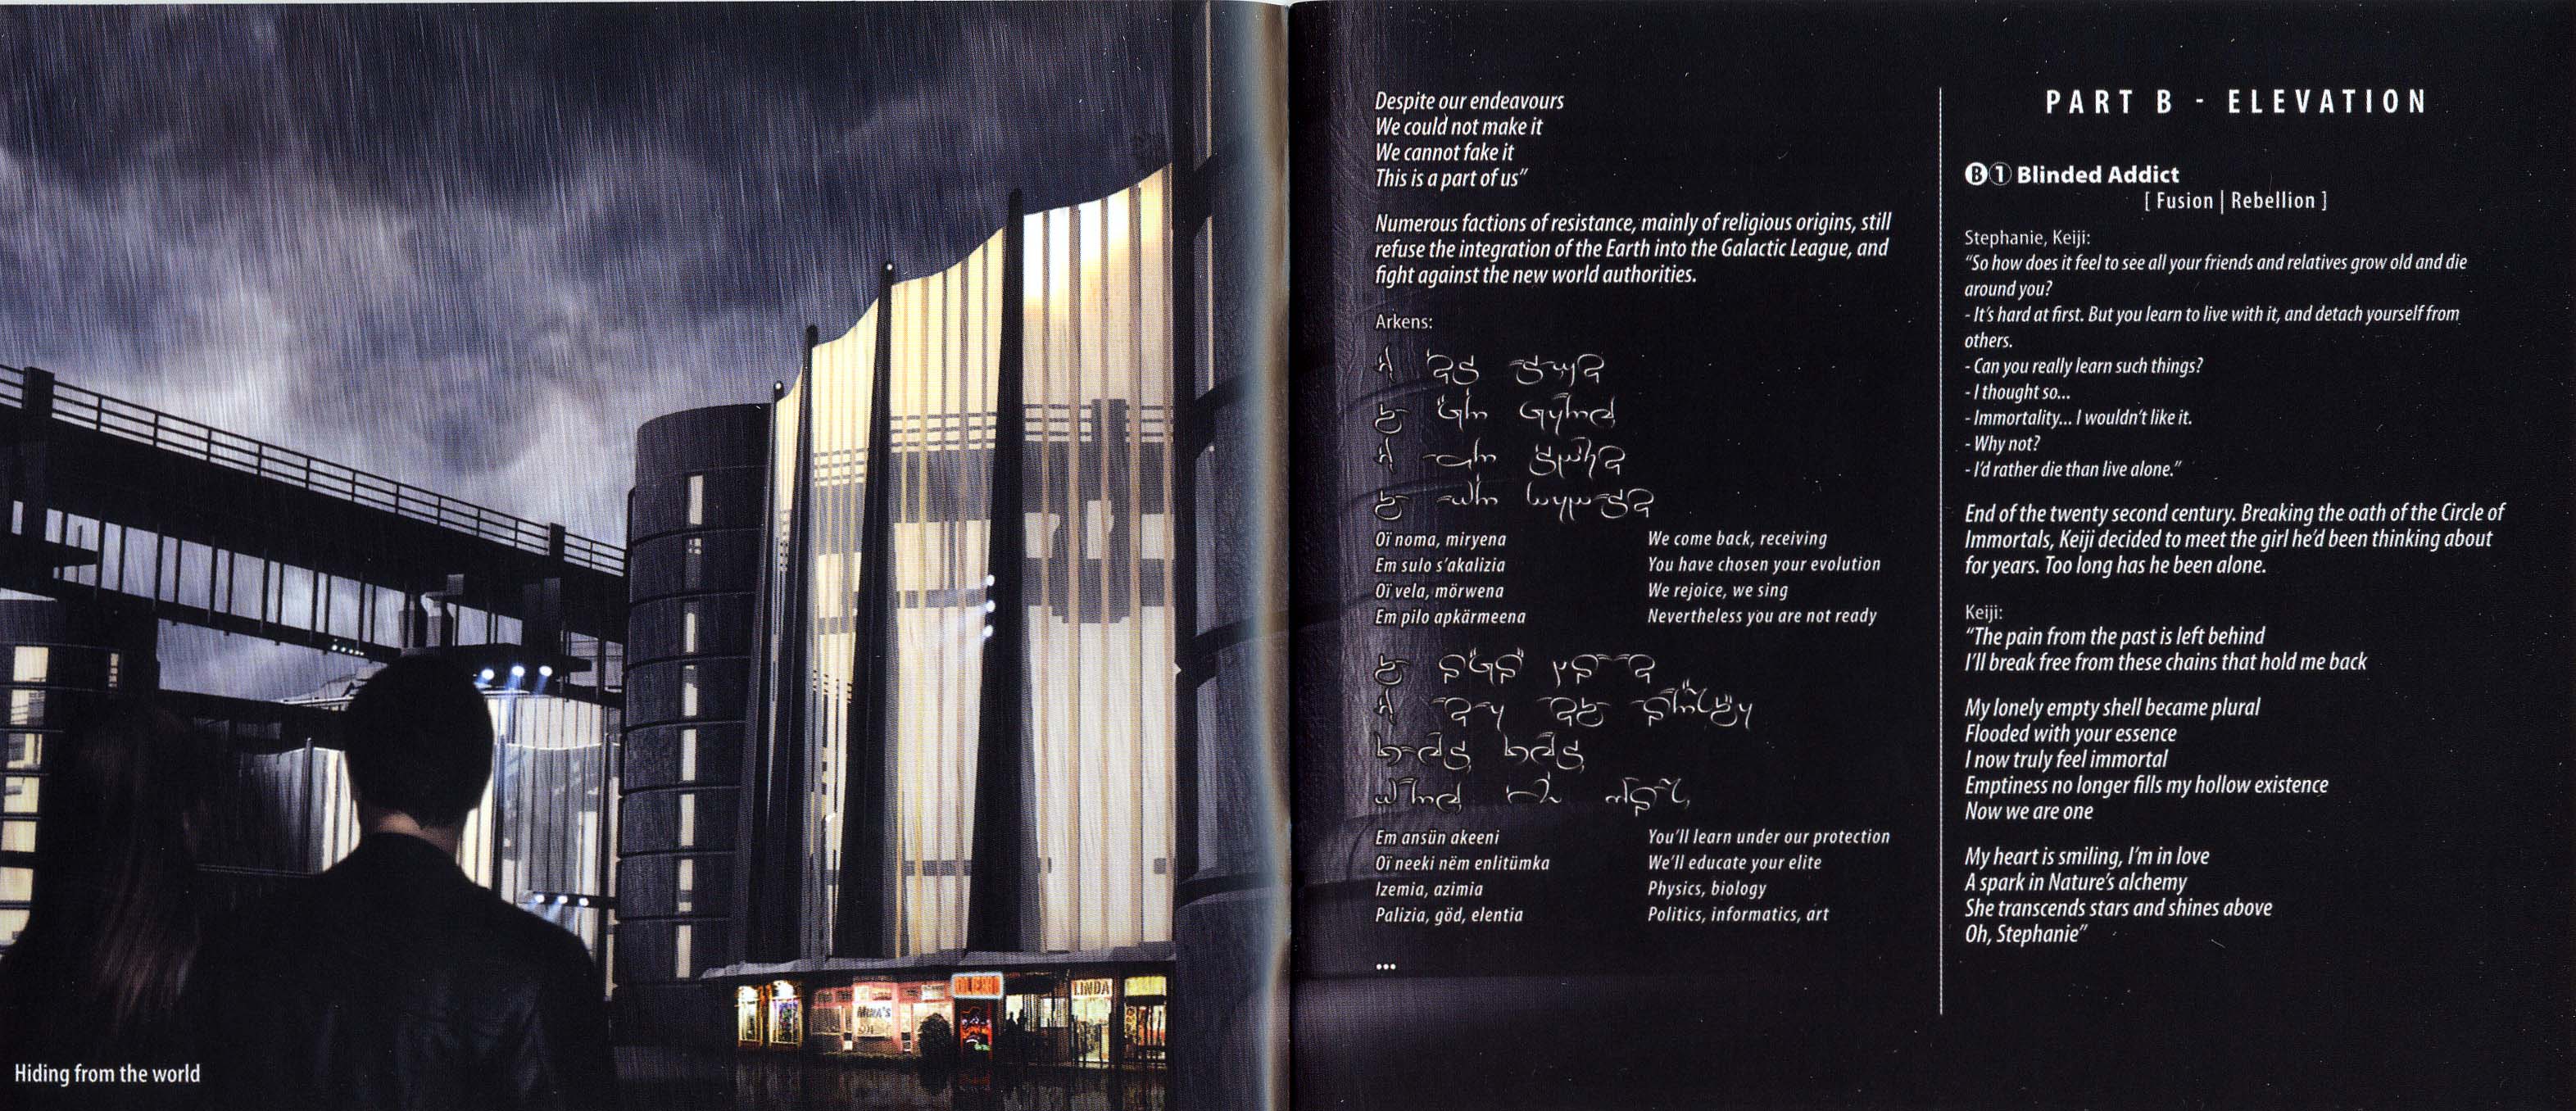 Hiding from the world
Despite our endeavours
We could not make it
We cannot fake it
This is a part of us"
Numerous factions of resistance, mainly of religious origins, still
refuse the integration of the Earth into the Galactic League, and
fight against the new world authorities.
Arkens:
Oï noma, miryena
Em sulo s'akalizia
Oï vela, mörwena
Em pilo apkärmeena
We come back, receiving
You have chosen your evolution
We rejoice, we sing
Nevertheless you are not ready
Em ansün akeeni
Oï neeki nëm enlitümka
Izemia, azimia
Palizia, göd, elentia
You'll learn under our protection
We'll educate your elite
Physics, biology
Politics, informatics, art
...
PART B - ELEVATION
B1 Blinded Addict
[ Fusion | Rebellion ]
Stephanie, Keiji:
"So how does it feel to see all your friends and relatives grow old and die
around you?
- It's hard at first. But you learn to live with it, and detach yourself from
others.
- Can you really learn such things?
- I thought so...
- Immortality... I wouldn't like it.
- Why not?
- I'd rather die than live alone."
End of the twenty second century. Breaking the oath of the Circle of
Immortals, Keiji decided to meet the girl he'd been thinking about
for years. Too long has he been alone.
Keiji:
"The pain from the past is left behind
I'll break free from these chains that hold me back
My lonely empty shell became plural
Flooded with your essence
I now truly feel immortal
Emptiness no longer fills my hollow existence
Now we are one
My heart is smiling, I'm in love
A spark in Nature's alchemy
She transcends stars and shines above
Oh, Stephanie"
MIRA'S
LINDA